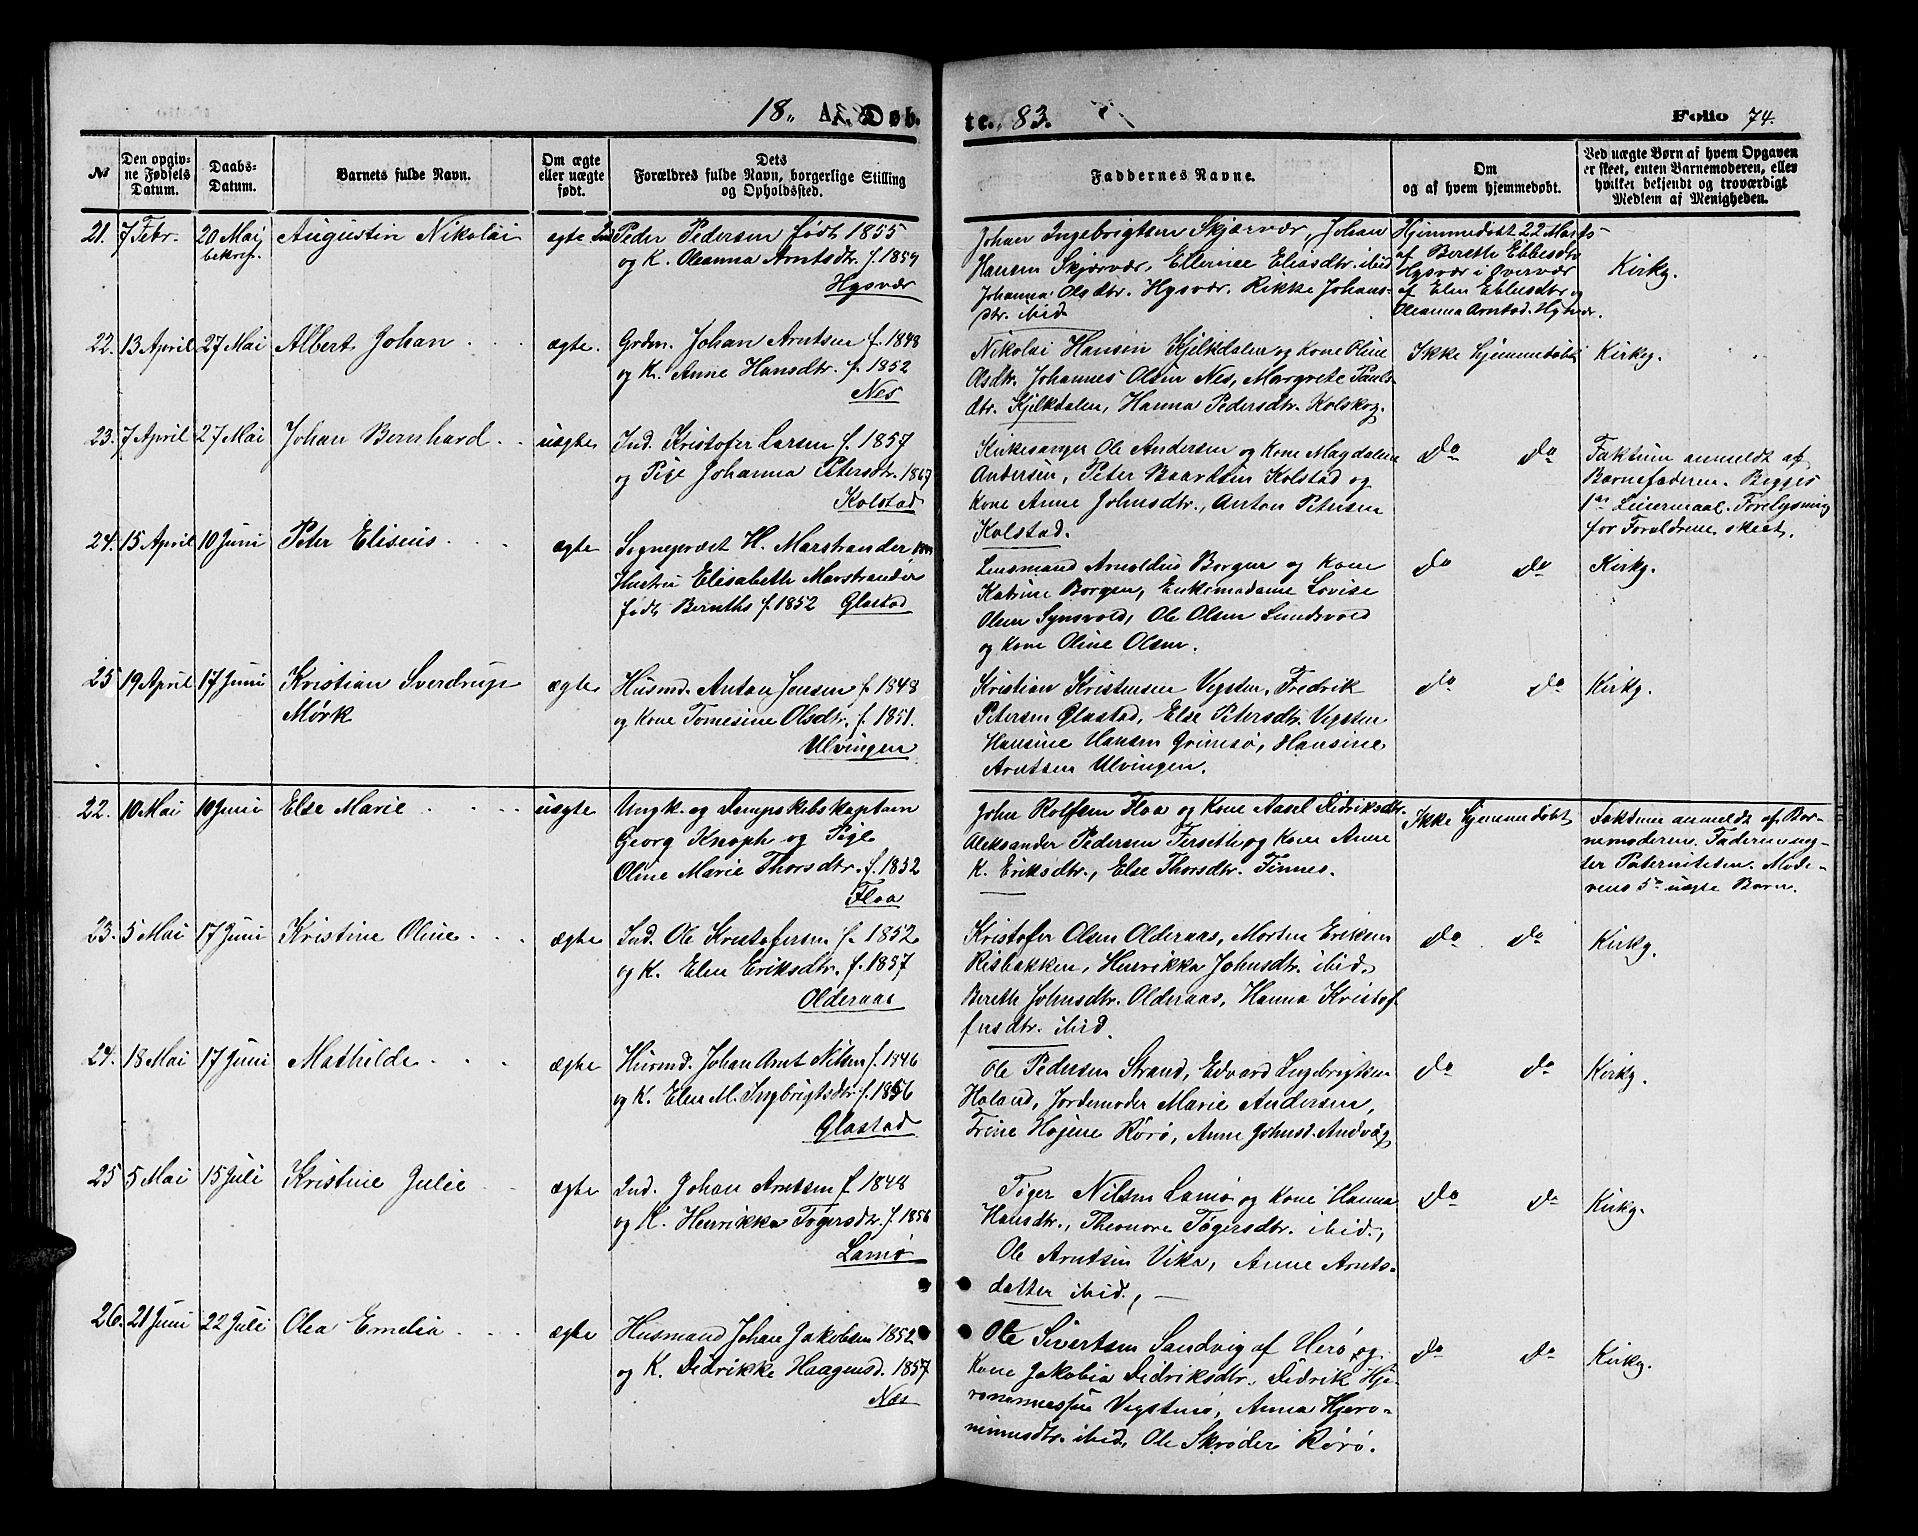 18„ A. Døb-
te. 83.
Folio 74.
No
Den opgiv-
ne Fødsels
Datum.
Daabs-
Datum.
Barnets fulde Navn.
Om ægte
eller uægte
født.
Dets
Forældres fulde Navn, borgerlige Stilling
og Opholdssted.
Faddernes Navne.
Om
og af hvem hjemmedøbt.
Ved uægte Børn af hvem Opgaven
er skeet, enten Barnemoderen, eller
hvilket bekjendt og troværdigt
Medlem af Menigheden.
21. 7 Febr. 20 Mai Augustin Nikolai ægte Ind Peder Pedersen født 1855
bekref.
og K. Oleanna Arntsdtr. f. 1859
Hysvær
Johan Ingebrigtsen Skjærvær, Johan
Hansen Skjærvær, Ellernee Eliasdtr. ibid
Johanna Olsdtr. Hysvær. Rikke Johans-
dtr. ibid
Hjemmedøbt 22 Marts
af Bereth Ebbesdtr
Hysvær i Overvær
af Elen Ebbesdtr og
Oleanna Arntsd. Hysvær.
Kirkg.
22. 13 April 27 Mai Albert Johan ægte. Grdm. Johan Arntsen f. 1848
og K. Anne Hansdtr. f. 1852
Nes
Nikolai Hansen Kjelkdalen og Kone Oline
Olsdtr. Johannes Olsen Nes, Margrete Pauls-
dtr. Kjelkdalen, Hanna Pedersdtr. Kolskog.
Ikke hjemmedøbt
Kirkg.
23. 7 April 27 Mai Johan Bernhard uægte Ind. Kristofer Larsen f. 1857
og Pige Johanna Petersdtr. 1867
Kolstad
Kirkesanger Ole Andersen og Kone Magdalena
Andersen, Peter Baardsen Kolstad og
Kone Anne Johnsdtr., Anton Petersen
Kolstad.
do do
Faktum anmeldt af
Barnefaderen. Begges
1ste Leiermaal. Forelysning
for Forældrene skeet.
24. 15 April 10 Juni Peter Elisius ægte Sogneprest H. Marstrander og
Hustru Elisabeth Marstrander
født Bernths f. 1852 Glastad
Lensmand Arnoldus Borgen og Kone
Katrine Borgen, Enkemadame Lovise
Olsen Synsvold, Ole Olsen Lundsvold
og Kone Oline Olsen.
do do
Kirkg.
25 19 April 17 Juni Kristian Sverdrup
Mørk
ægte Husmd. Anton Jensen f. 1848
og Kone Tomesine Olsdtr. f. 1851.
Ulvingen
Kristian Kristensen Vegsten, Fredrik
Petersen Glastad, Else Petersdtr. Vegsten
Hansine Hansen Grimsø, Hansine
Arntsen Ulvingen.
do do
Kirkg.
22. 10 Mai 10 Juni Else Marie uægte Ungk. og Dampskibskaptain
Georg Knoph og Pige
Oline Marie Thorsdtr. f. 1852
Floa
John Rolfsen Floa og Kone Aasel Didriksdtr.
Aleksander Pedersen Forseth og Kone Anne
K. Eriksdtr., Else Thorsdtr. Finnes.
Ikke hjemmedøbt
Faktum anmeldt af Bar-
nemoderen. Faderen neg-
ter Paterniteten. Mode-
rens 5te uægte Barn.
23. 5 Mai 17 Juni Kristine Oline ægte Ind. Ole Kristofersen f. 1852
og K. Elen Eriksdtr. f. 1857
Olderaas
Kristofer Olsen Olderaas, Morten Eriksen
Risbakken, Henrikka Johnsdtr. ibid.
Bereth Johnsdtr. Olderaas, Hanna Kristof-
fersdtr. ibid.
do do
Kirkg.
24. 18 Mai 17 Juni Mathilde ægte Husmd. Johan Arnt Nilsen f. 1846
og K. Elen M. Ingbrigtsdtr f. 1856
Glastad
Ole Pedersen Strand, Edvard Ingebrigtsen
Høland, Jordemoder Marie Andersen,
Trine Højene Rørø, Anne Johnsd. Andvåg
do do
Kirkg.
25 5 Mai 15 Juli Kristine Julie ægte Ind. Johan Arntsen f. 1848
og K. Henrikka Tøgersdtr. f. 1856
Lamø
Tøger Nilsen Lamø og Kone Hanna
Hansdtr., Theonore Tøgersdtr. ibid.,
Ole Arntsen Vika, Anne Arnts-
datter ibid.,
do do
Kirkg.
26. 21 Juni 22 Juli Olea Emelia ægte Husmand Johan Jakobsen 1852
og K. Didrikke Haagensd. 1857
Næs
Ole Sivertsen Sandvig af Herø og
Kone Jakobia Didriksdtr., Didrik Hje-
ronemussen Vegstenø, Anna Hjero-
nimusdtr. ibid, Ole Skrøder Rørø.
do do
Kirkg.